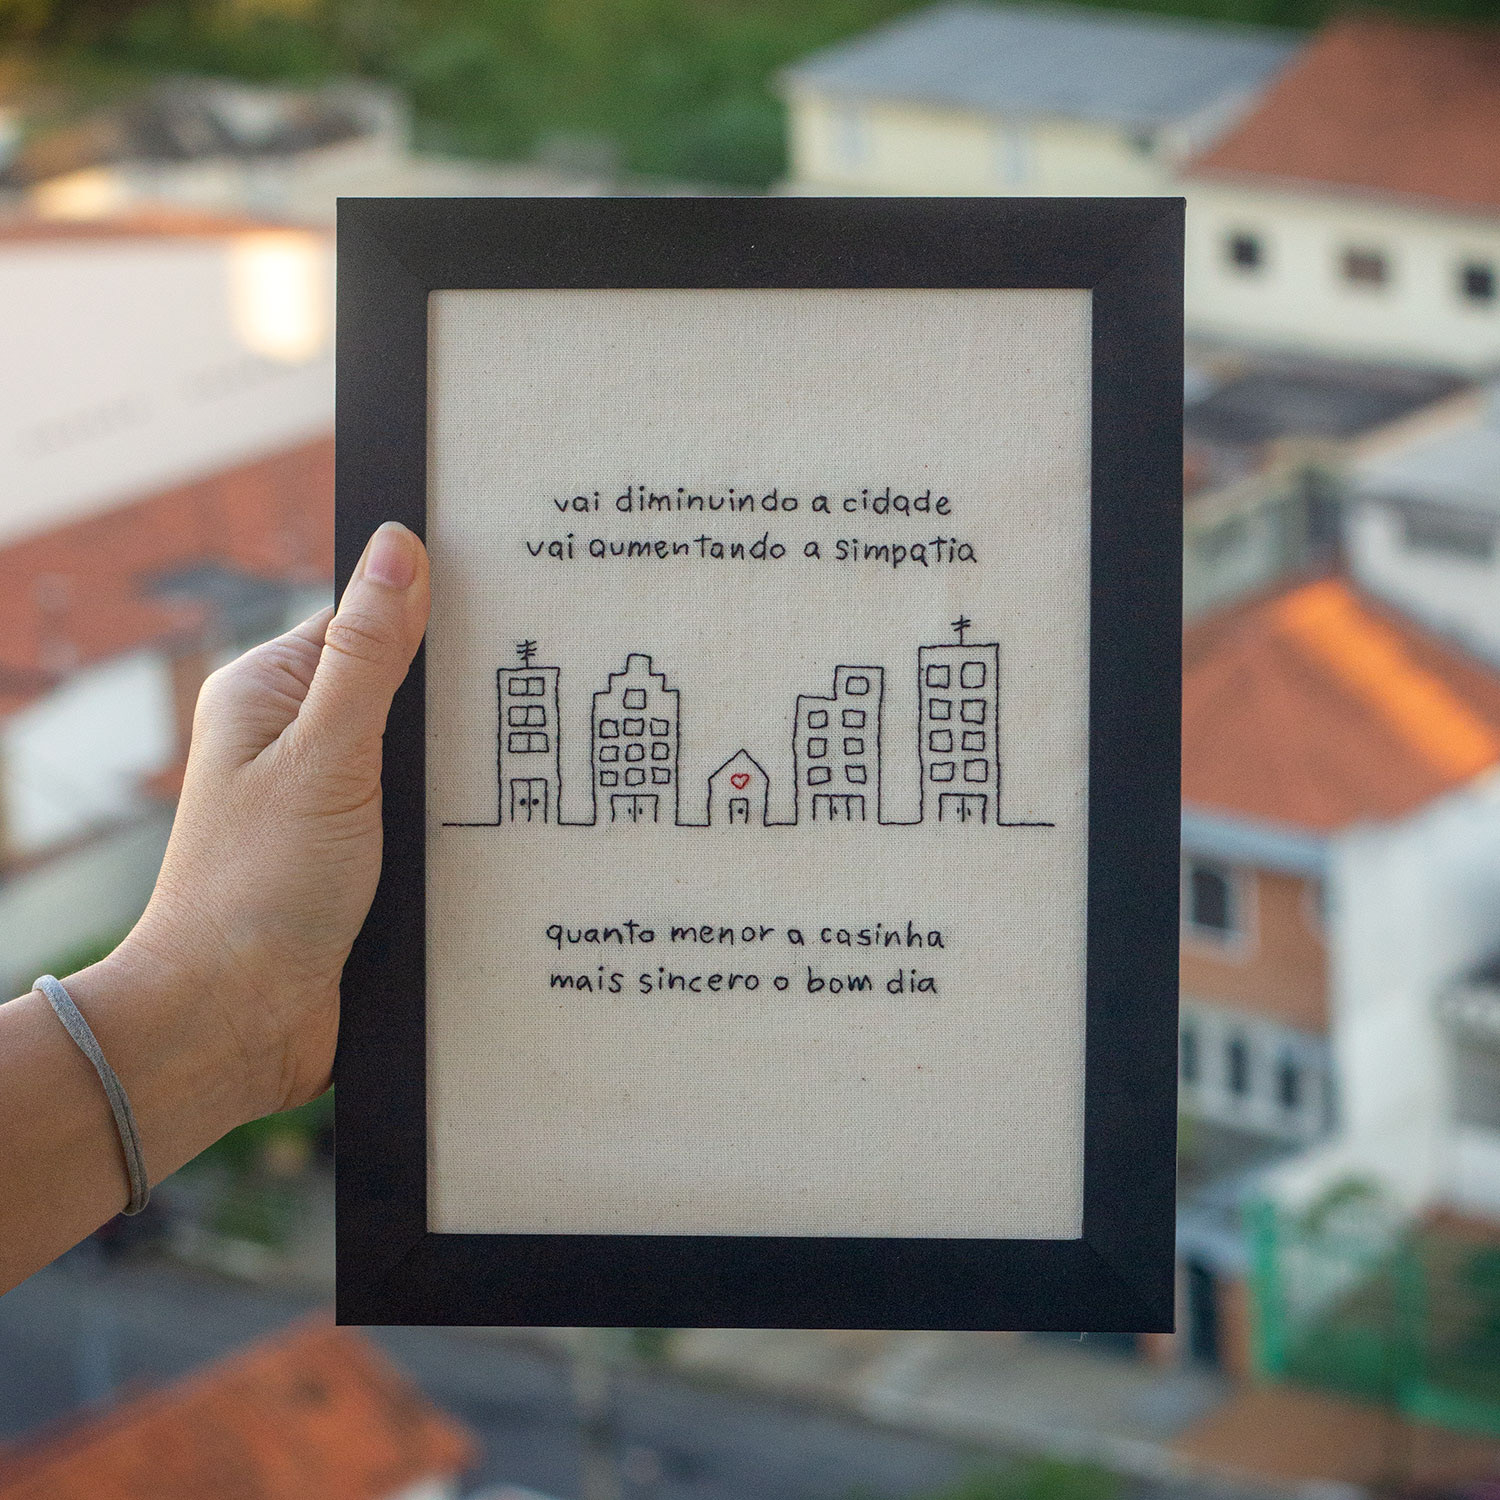 vai diminuindo a cidade
vai aumentando a simpatia
quanto menor a casinha
mais sincero o bom dia